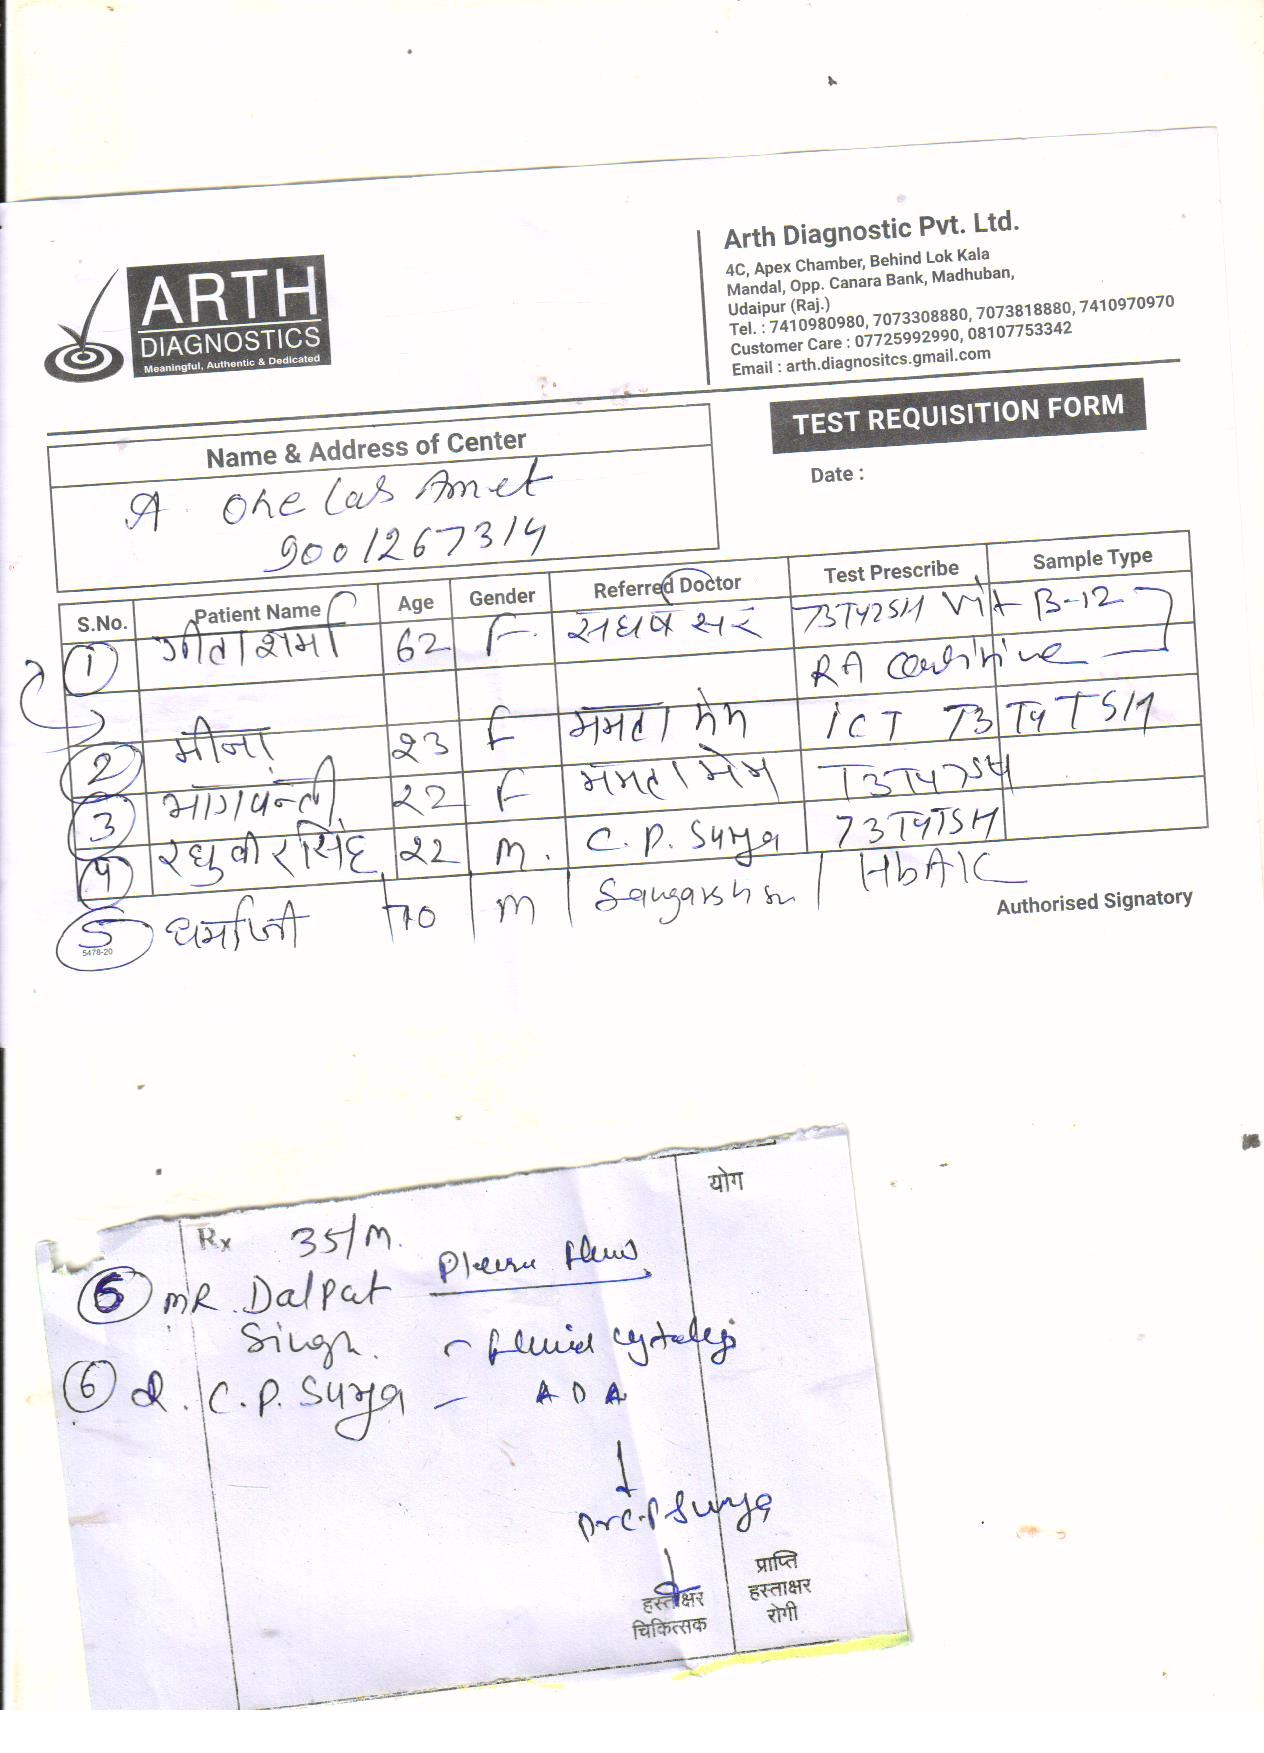 ARTH
DIAGNOSTICS
Meaningful, Authentic & Dedicated
Arth Diagnostic Pvt. Ltd.
4C, Apex Chamber, Behind Lok Kala
Mandal, Opp. Canara Bank, Madhuban,
Udaipur (Raj.)
Tel. : 7410980980, 7073308880, 7073818880, 7410970970
Customer Care : 07725992990, 08107753342
Email : arth.diagnositcs.gmail.com
TEST REQUISITION FORM
Date :
Name & Address of Center
A. One Lab Amet
9001267314
S.No. Patient Name Age Gender Referred Doctor Test Prescribe Sample Type
1 गीता शर्मा 62 F. संघर्ष सर T3T4TSH Vit B-12
RA
2 मीना 23 F ममता मेम ICT T3 T4 TSH
3 भागवन्ती 22 F ममता मेम T3T4TSH
4 रघुवीर सिंह 22 M. C. P. Surya T3T4TSH
5 धर्माजी 70 M HbA1C
5478-20
Authorised Signatory
योग
Rx 35/M.
6 MR. Dalpat
Singh. fluid cytology
6 C. P. Surya - ADA
Dr C.P Surya
हस्ताक्षर
चिकित्सक
प्राप्ति
हस्ताक्षर
रोगी